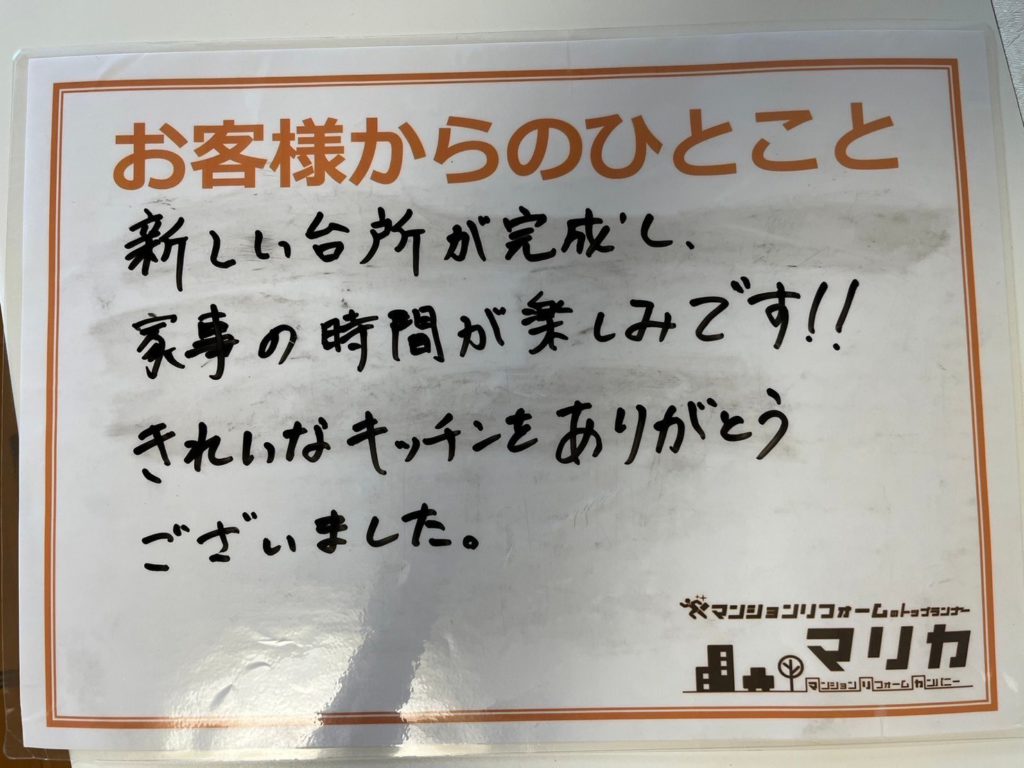 お客様からのひとこと
新しい台所が完成し、
家事の時間が楽しみです!!
きれいなキッチンをありがとう
ございました。
マンションリフォームのトップランナー
マリカ
マンションリフォームカンパニー